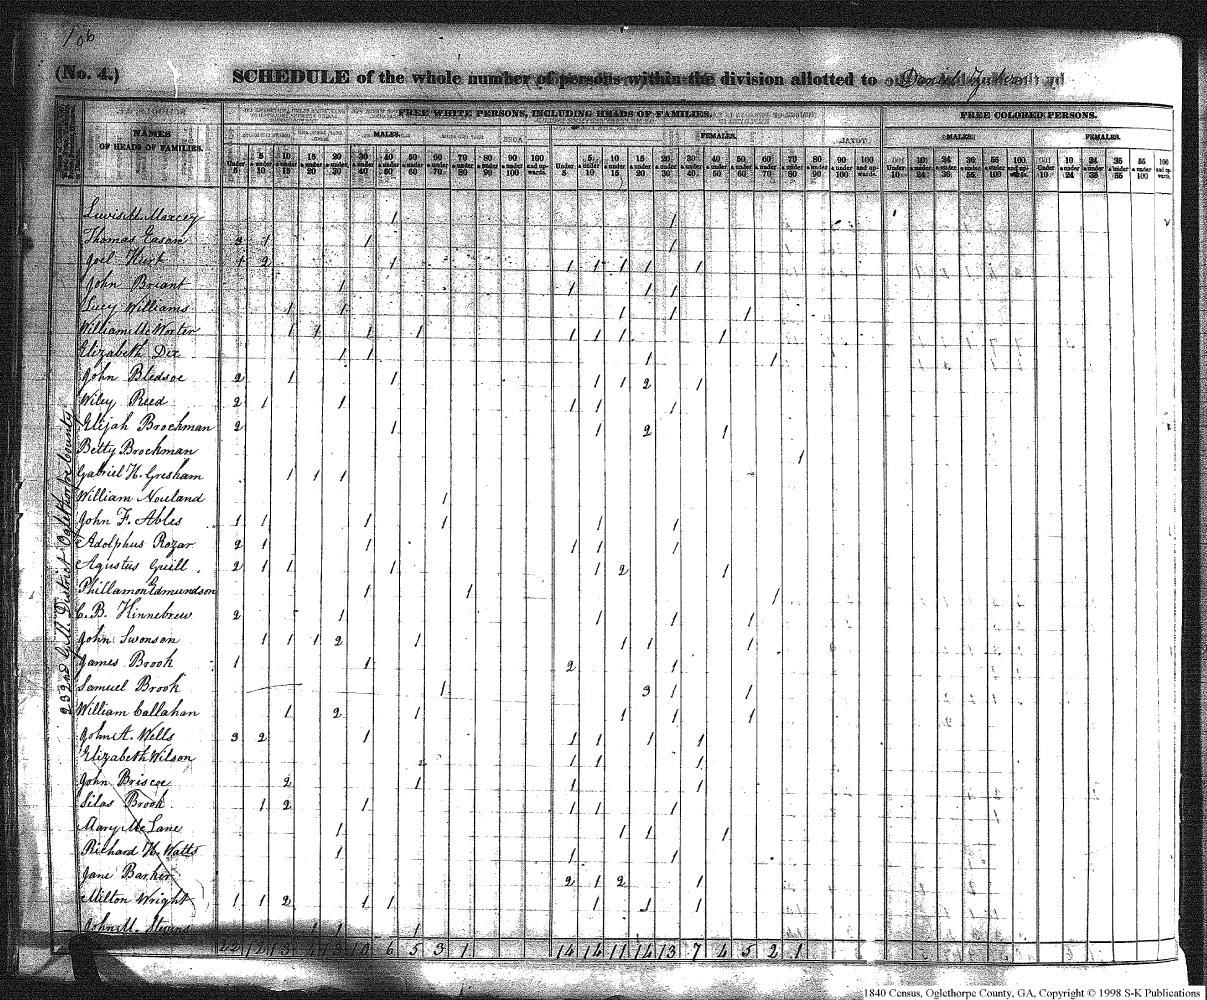 106
(No. 4.) SCHEDULE of the whole number of persons within the division allotted to Daniel
NAMES OF HEADS OF FAMILIES.
FREE WHITE PERSONS, INCLUDING HEADS OF FAMILIES.
FREE COLORED PERSONS.
MALES. FEMALES. MALES. FEMALES.
Under 5 5 & under 10 10 & under 15 15 & under 20 20 & under 30 30 & under 40 40 & under 50 50 & under 60 60 & under 70 70 & under 80 80 & under 90 90 & under 100 100 and upwards.
Under 5 5 & under 10 10 & under 15 15 & under 20 20 & under 30 30 & under 40 40 & under 50 50 & under 60 60 & under 70 70 & under 80 80 & under 90 90 & under 100 100 and upwards.
Under 10 10 & under 24 24 & under 36 36 & under 55 55 & under 100 100 and upwards.
Under 10 10 & under 24 24 & under 36 36 & under 55 55 & under 100 100 and upwards.
232nd G.M. District Oglethorpe County
Lewis M. Maxcey 1 1
Thomas Eason 3 1 1 1
Joel Hurt 1 2 1 1 1 1 1 1
John Briant 1 1 1 1
Lucy Williams 1 1 1 1 1
William McWorter 1 1 1 1 1 1 1 1
Elizabeth Dix 1 1 1 1
John Bledsoe 2 1 1 1 1 2 1
Wiley Reed 2 1 1 1 1 1
Elijah Brockman 2 1 1 2 1
Betty Brockman 1
Gabriel H. Gresham 1 1 1
William Nouland 1
John F. Ables 1 1 1 1 1 1
Adolphus Rozar 2 1 1 1 1 1
Agustus Guill 2 1 1 1 1 2 1
Phillamon Edmundson 1 1 1
C. B. Hinnebrew 2 1 1 1 1
John Swonson 1 1 1 2 1 1 1 1
James Brook 1 1 2 1
Samuel Brook 1 3 1 1
William Callahan 1 2 1 1 1 1
John A. Wells 3 2 1 1 1 1 1
Elizabeth Wilson 1 1 1
John Briscoe 2 1 1 1
Silas Brook 1 2 1 1 1 1
Mary McLane 1 1 1 1
Richard H. Watts 1 1 1
Jane Barker 2 1 2 1
Milton Wright 1 1 2 1 1 1 1 1
John M. Stevens 1 1 1
22 12 13 4 13 10 6 5 3 1 14 14 11 14 13 7 4 5 2 1
1840 Census, Oglethorpe County, GA, Copyright © 1998 S-K Publications